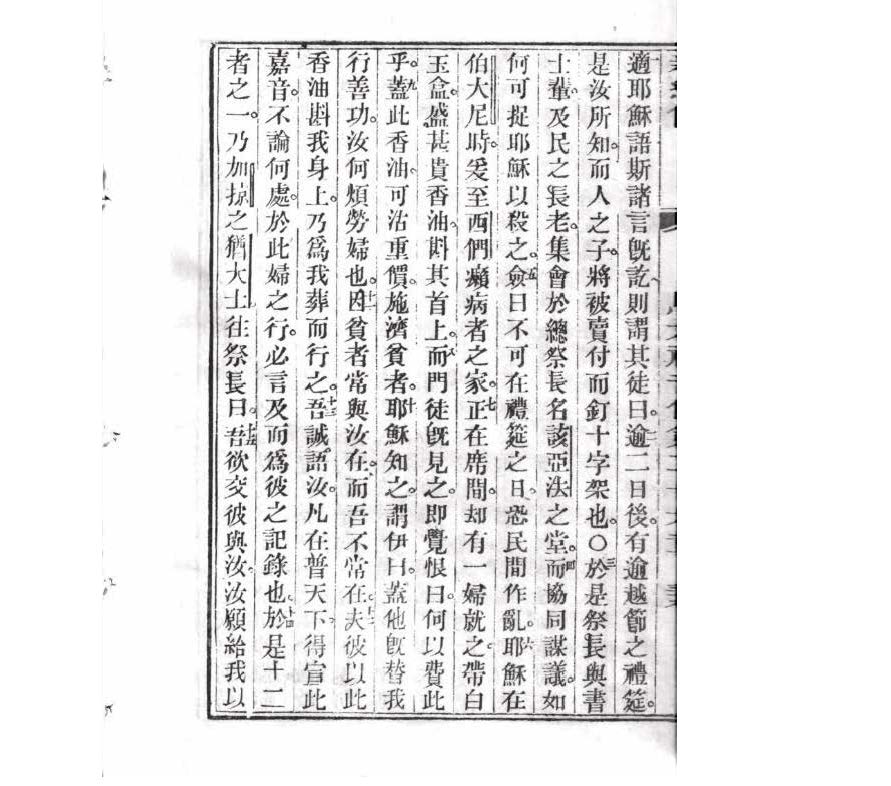 適耶穌語斯諸言旣訖則謂其徒曰。二逾二日後。有逾越節之禮筵。
是汝所知。而人之子。將被賣付而釘十字架也。〇三於是祭長與書
士輩。及民之長老。集會於總祭長名該亞法之堂。四而協同謀議。如
何可捉耶穌以殺之。五僉曰不可在禮筵之日。恐民間作亂。六耶穌在
伯大尼時。爰至西們癩病者之家。七正在席間。却有一婦就之。帶白
玉盒。盛甚貴香油。斟其首上。八而門徒旣見之。卽覺恨曰。何以費此
乎。九蓋此香油。可沽重價。施濟貧者。十耶穌知之。謂伊曰。蓋他旣替我
行善功。汝何煩勞婦也。十一因貧者常與汝在。而吾不常在。十二夫彼以此
香油斟我身上。乃爲我葬而行之。十三吾誠語汝。凡在普天下。得宣此
嘉音。不論何處。於此婦之行。必言及而爲彼之記錄也。十四於是十二
者之一。乃加掠之猶大士往祭長曰。十五吾欲交彼與汝。汝願給我以